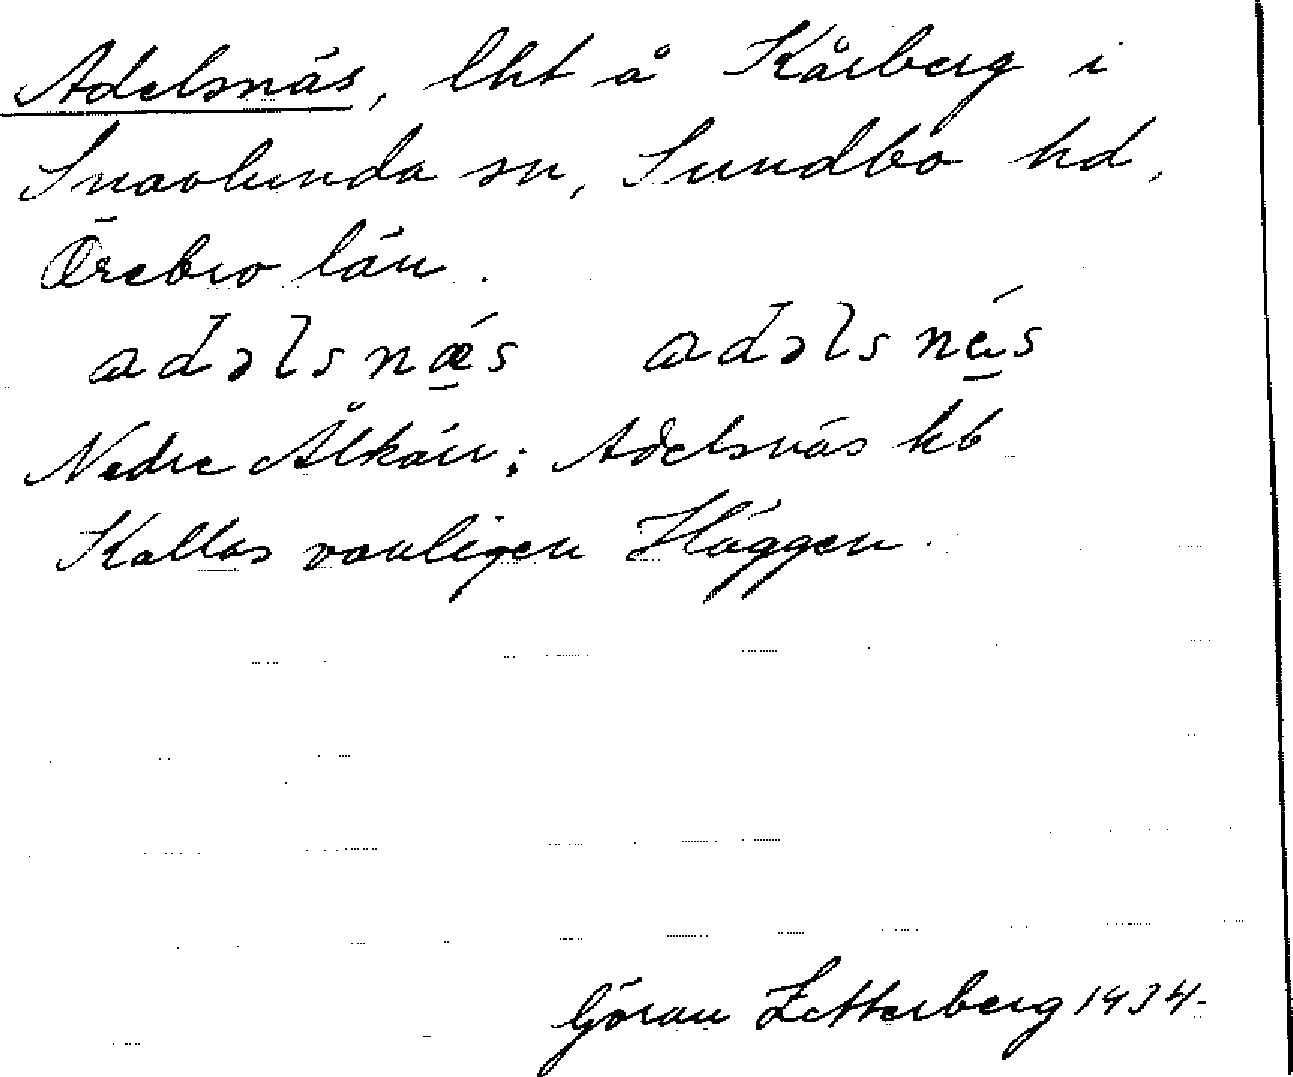 Adelsnäs, lht å Kårberg i
Snavlunda sn, Sundbo hd,
Örebro län.
adəlsnǽ̠s adəlsnä̠́s
Nedre Älkärr; Adelsnäs hb
Kallas vanligen Häggen.
Göran Zetterberg 1934